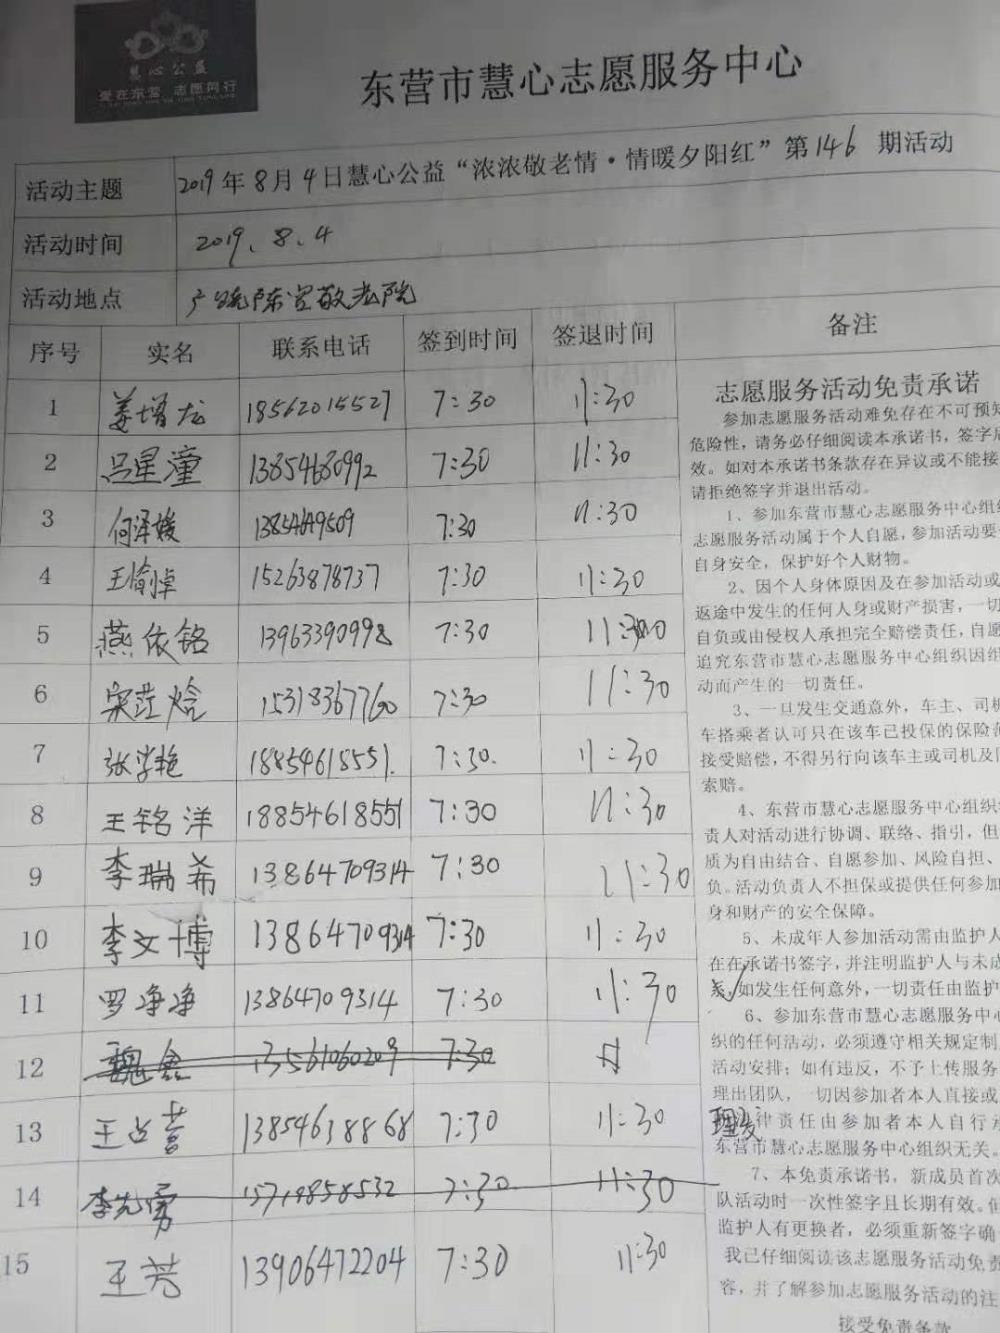 慧心公益
爱在东营 志愿同行
东营市慧心志愿服务中心
活动主题 2019年8月4日慧心公益“浓浓敬老情·情暖夕阳红”第146期活动
活动时间 2019、8、4
活动地点 广饶陈官敬老院
序号 实名 联系电话 签到时间 签退时间 备注
1 姜增龙 18562015527 7:30 11:30
2 吕星潼 13854680992 7:30 11:30
3 何泽媛 13854649509 7:30 11:30
4 王愉卓 15263878737 7:30 11:30
5 燕依铭 13963390998 7:30
6 15318367760 7:30 11:30
7 张学艳 18854618551. 7:30. 11:30
8 王铭洋 18854618551 7:30 11:30
9 李瑞希 13864709314 7:30 11:30
10 李文博 13864709314 7:30 11:30
11 罗净净 13864709314 7:30 11:30
12 魏鑫 13561060209 7:30
13 13854638868 7:30 11:30
14 李先勇 15719858532 7:30 11:30
15 王芳 13906472204 7:30 11:30
志愿服务活动免责承诺
参加志愿服务活动难免存在不可预知
危险性，请务必仔细阅读本承诺书，签字后
效。如对本承诺书条款存在异议或不能接
请拒绝签字并退出活动。
1、参加东营市慧心志愿服务中心组织
志愿服务活动属于个人自愿，参加活动要
自身安全，保护好个人财物。
2、因个人身体原因及在参加活动或
返途中发生的任何人身或财产损害，一切
自负或由侵权人承担完全赔偿责任，自愿
追究东营市慧心志愿服务中心组织因组
动而产生的一切责任。
3、一旦发生交通意外，车主、司机
车搭乘者认可只在该车已投保的保险范
接受赔偿，不得另行向该车主或司机及
索赔。
4、东营市慧心志愿服务中心组织
责人对活动进行协调、联络、指引，但
质为自由结合、自愿参加、风险自担、
负。活动负责人不担保或提供任何参加
身和财产的安全保障。
5、未成年人参加活动需由监护人
在在承诺书签字，并注明监护人与未成
系，如发生任何意外，一切责任由监护
6、参加东营市慧心志愿服务中心
织的任何活动，必须遵守相关规定制
活动安排；如有违反，不予上传服务
理出团队，一切因参加者本人直接或
律责任由参加者本人自行承
东营市慧心志愿服务中心组织无关。
7、本免责承诺书，新成员首次
队活动时一次性签字且长期有效。但
监护人有更换者，必须重新签字确
我已仔细阅读该志愿服务活动免责
容，并了解参加志愿服务活动的注
接受免责条款